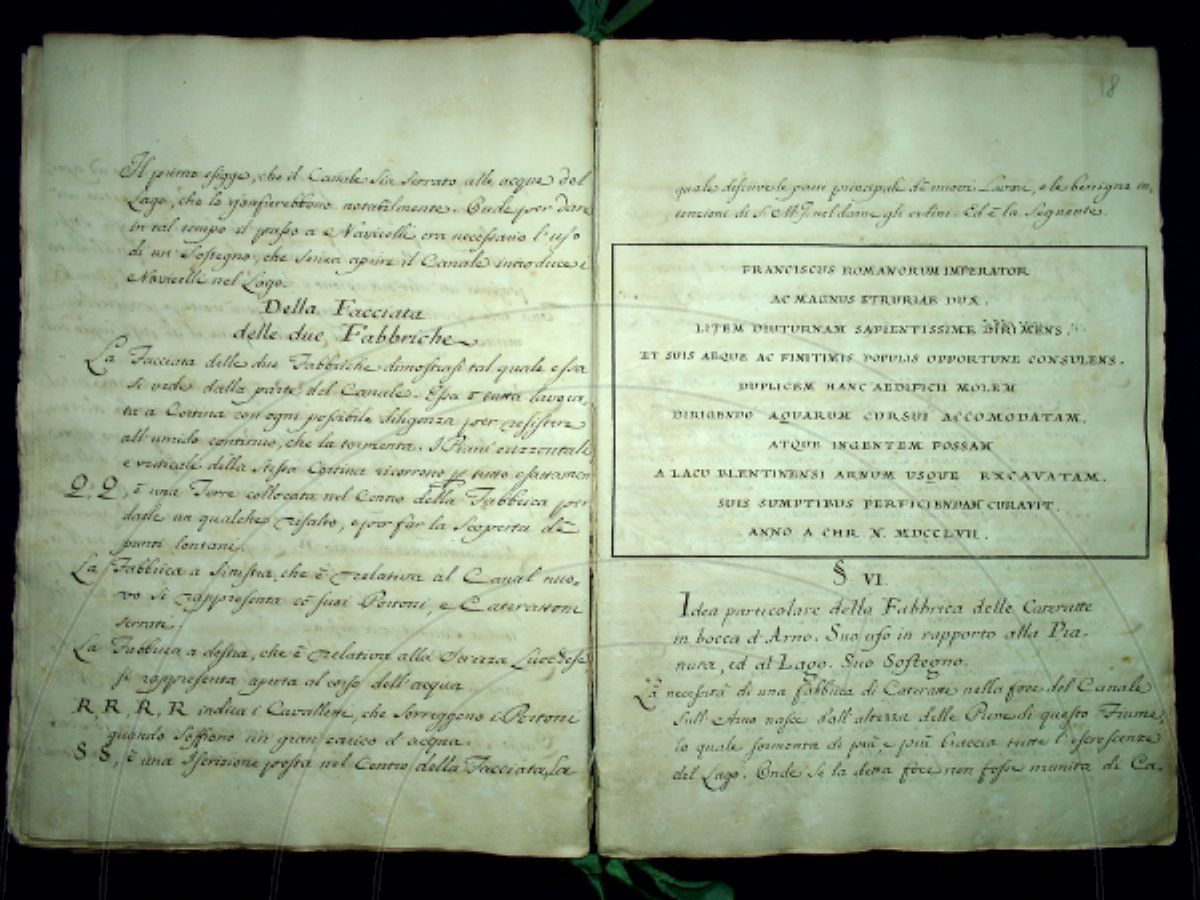 Il primo esigge, che il Canale sia serrato alle acque del
Lago, che lo gonfierebbono notabilmente. Onde per dare
in tal tempo il passo a Navicelli era necessario l'uso
di un Sostegno, che senza aprire il Canale introduce i
Navicelli nel Lago.
Della Facciata
delle due Fabbriche
La Facciata delle due Fabbriche dimostrasi tal quale essa
si vede dalla parte del Canale. Essa è tutta lavora-
ta a Cortina con ogni possibile diligenza per resistere
all'umido continuo, che la tormenta. I Piani orizzontali
e verticale della stessa Cortina ricorrono p tutto esattamen
Q, Q, è una Torre collocata nel Centro della Fabbrica per
darle un qualche risalto, e per far la scoperta de
punti lontani.
La Fabbrica a Sinistra, che è relativa al Canal nuo-
vo si rappresenta co suoi Portoni, e Caterattoni
serrati.
La Fabbrica a destra, che è relativa alla Serezza Lucchese
si rappresenta aperta al corso dell'acqua.
R, R, R, R indica i Cavalletti, che sorreggono i Portoni
quando soffrono un gran carico d'acqua.
S S, è una Iscrizione posta nel Centro della Facciata, la
18
quale descrive le parti principali de nuovi Lavori, e la benigna in-
tenzione di S. M. I. nel darne gli ordini. Ed è la seguente.
FRANCISCUS ROMANORUM IMPERATOR
AC MAGNUS ETRURIAE DUX.
LITEM DIUTURNAM SAPIENTISSIME DIRIMENS.
ET SUIS AEQUE AC FINITIMIS POPULIS OPPORTUNE CONSULENS.
DUPLICEM HANC AEDIFICII MOLEM
DIRIGENDO AQUARUM CURSUI ACCOMODATAM.
ATQUE INGENTEM FOSSAM
A LACU BLENTINENSI ARNUM USQUE EXCAVATAM.
SUIS SUMPTIBUS PERFICIENDAM CURAVIT.
ANNO A CHR. N. MDCCLVII.
§ VI.
Idea particolare della Fabbrica delle Cateratte
in bocca d'Arno. Suo uso in rapporto alla Pia-
nura, ed al Lago. Suo Sostegno.
La necessità di una fabbrica di Cateratte nella foce del Canale
sull'Arno nasce dall'altezza delle Piene di questo Fiume,
lo quale sormonta di più, e più braccia tutte l'escrescenze
del Lago. Onde se la detta foce non fosse munita di Ca-